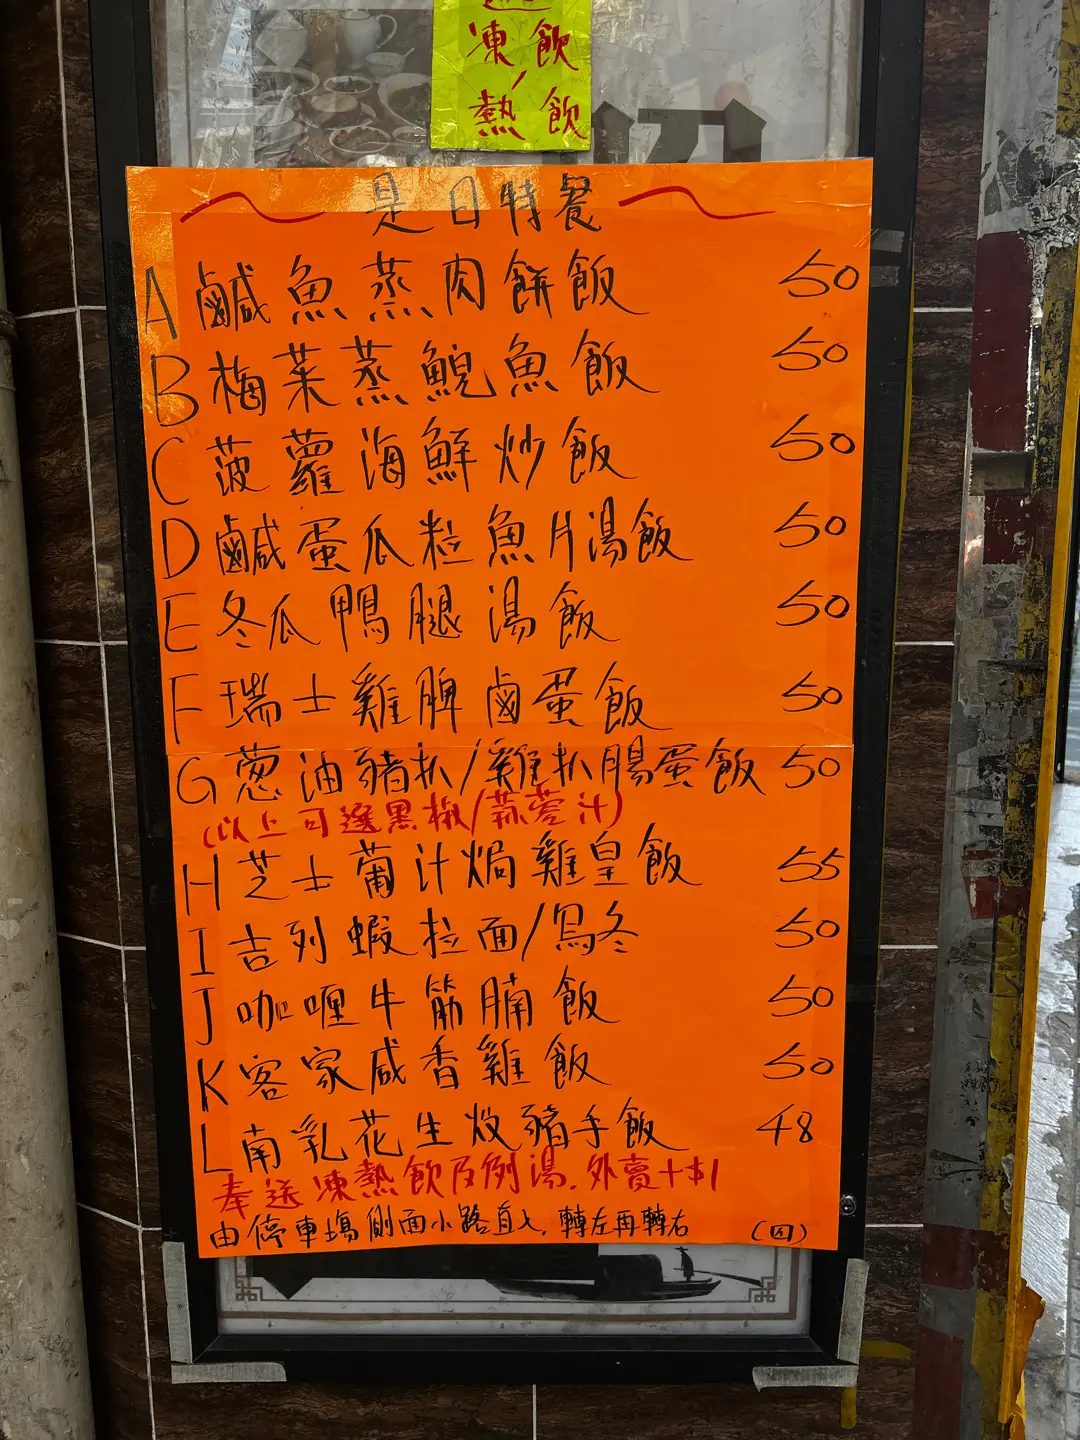 凍飲/
熱飲
是日特餐
A 鹹魚蒸肉餅飯 50
B 梅菜蒸鯇魚飯 50
C 菠蘿海鮮炒飯 50
D 鹹蛋瓜粒魚片湯飯 50
E 冬瓜鴨腿湯飯 50
F 瑞士雞脾鹵蛋飯 50
G 葱油豬扒/雞扒腸蛋飯 50
(以上可選黑椒/蒜蓉汁)
H 芝士葡汁焗雞皇飯 55
I 吉列蝦拉面/烏冬 50
J 咖喱牛筋腩飯 50
K 客家咸香雞飯 50
L 南乳花生炆豬手飯 48
奉送凍熱飲及例湯.外賣+$1
由停車塲側面小路直入.轉左再轉右 (四)